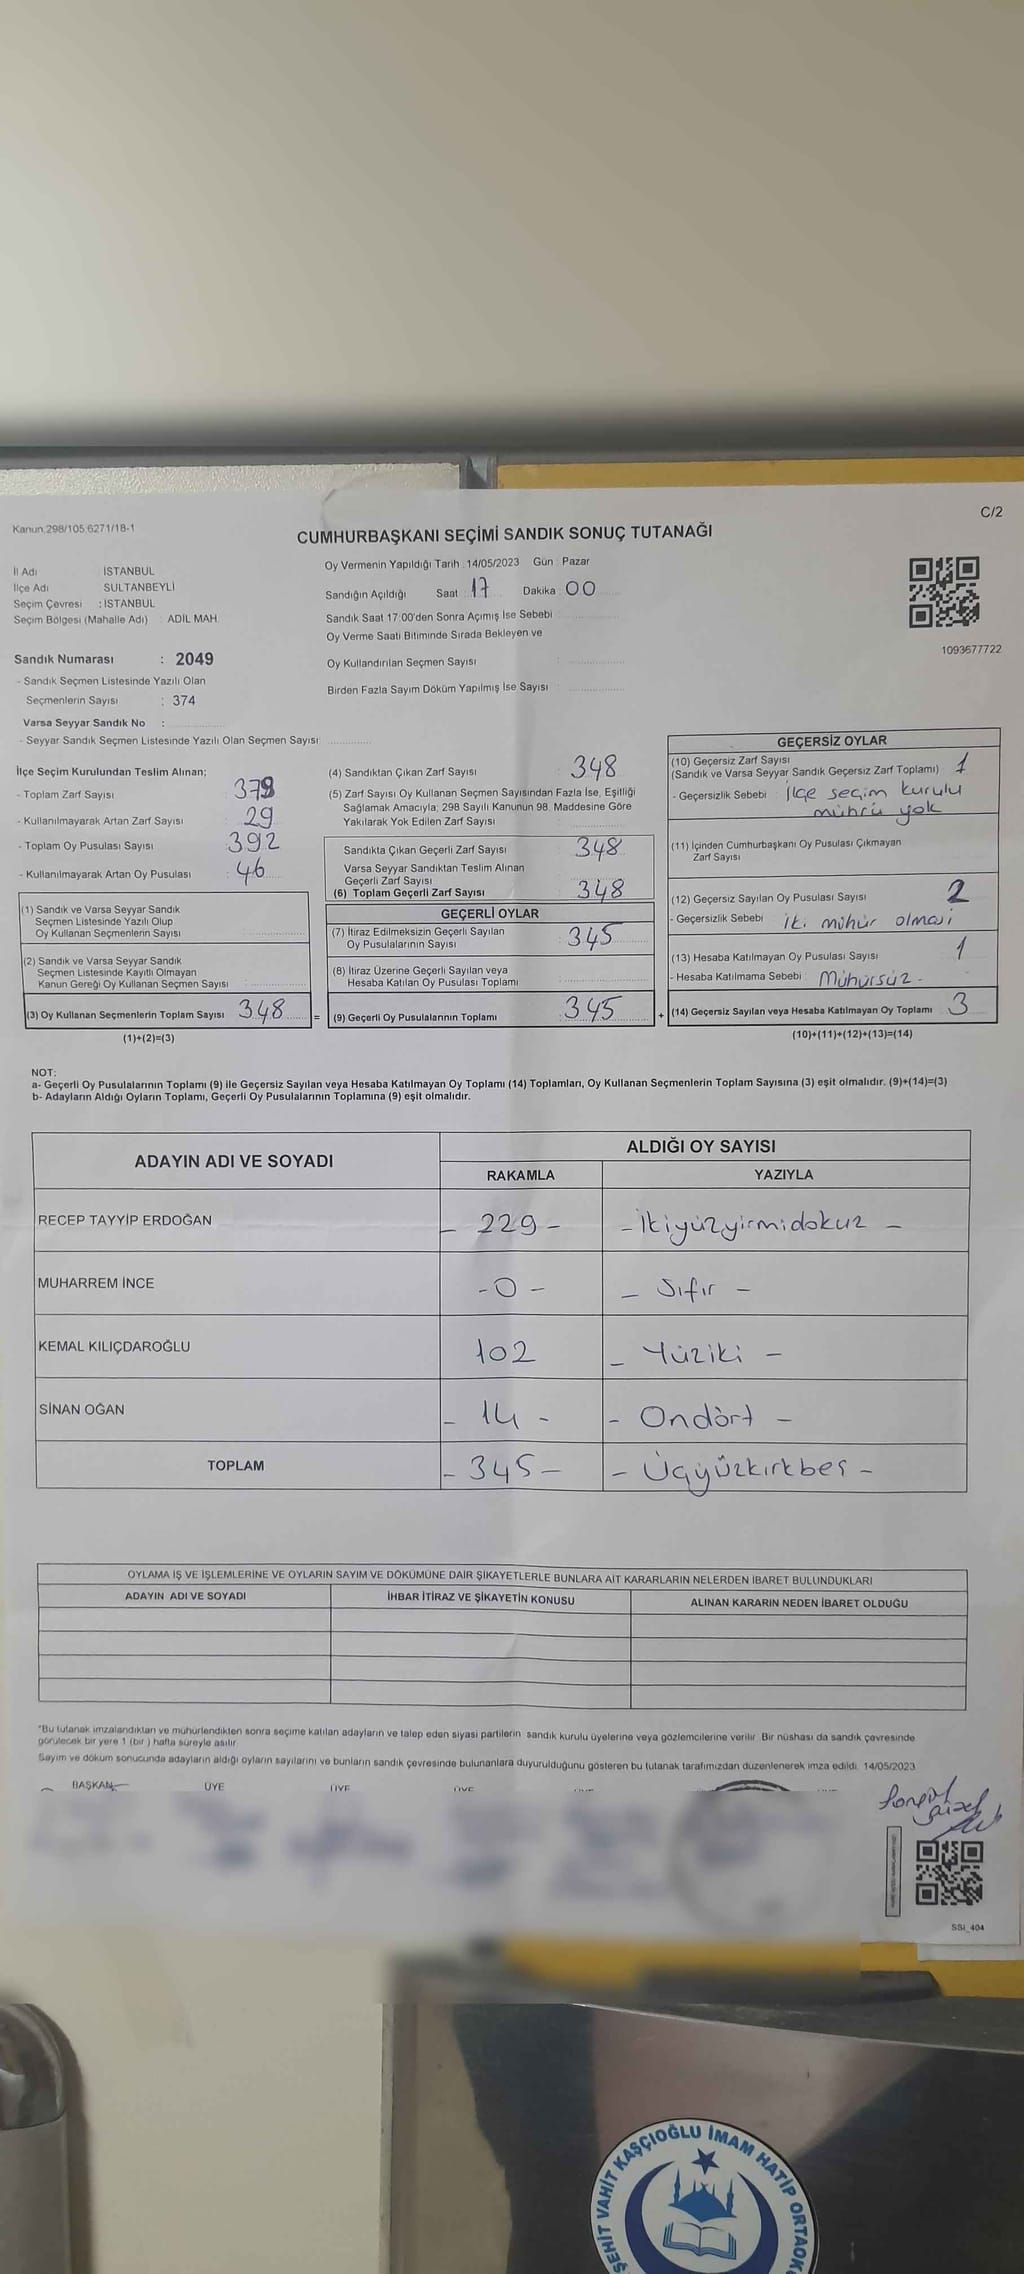 Kanun.298/105,6271/18-1
C/2
CUMHURBAŞKANI SEÇİMİ SANDIK SONUÇ TUTANAĞI
İl Adı İSTANBUL
İlçe Adı SULTANBEYLİ
Seçim Çevresi : İSTANBUL
Seçim Bölgesi (Mahalle Adı) : ADİL MAH.
Sandık Numarası : 2049
- Sandık Seçmen Listesinde Yazılı Olan
Seçmenlerin Sayısı : 374
Varsa Seyyar Sandık No :
- Seyyar Sandık Seçmen Listesinde Yazılı Olan Seçmen Sayısı
Oy Vermenin Yapıldığı Tarih : 14/05/2023 Gün : Pazar
Sandığın Açıldığı Saat : 17 Dakika : 00
Sandık Saat 17:00'den Sonra Açımış İse Sebebi
Oy Verme Saati Bitiminde Sırada Bekleyen ve
Oy Kullandırılan Seçmen Sayısı :
Birden Fazla Sayım Döküm Yapılmış İse Sayısı :
1093677722
İlçe Seçim Kurulundan Teslim Alınan;
- Toplam Zarf Sayısı
- Kullanılmayarak Artan Zarf Sayısı : 29
- Toplam Oy Pusulası Sayısı : 392
- Kullanılmayarak Artan Oy Pusulası : 46
(1) Sandık ve Varsa Seyyar Sandık
Seçmen Listesinde Yazılı Olup
Oy Kullanan Seçmenlerin Sayısı
(2) Sandık ve Varsa Seyyar Sandık
Seçmen Listesinde Kayıtlı Olmayan
Kanun Gereği Oy Kullanan Seçmen Sayısı :
(3) Oy Kullanan Seçmenlerin Toplam Sayısı 348
(1)+(2)=(3)
(4) Sandıktan Çıkan Zarf Sayısı 348
(5) Zarf Sayısı Oy Kullanan Seçmen Sayısından Fazla İse, Eşitliği
Sağlamak Amacıyla; 298 Sayılı Kanunun 98. Maddesine Göre
Yakılarak Yok Edilen Zarf Sayısı
Sandıkta Çıkan Geçerli Zarf Sayısı 348
Varsa Seyyar Sandıktan Teslim Alınan
Geçerli Zarf Sayısı
(6) Toplam Geçerli Zarf Sayısı 348
GEÇERLİ OYLAR
(7) İtiraz Edilmeksizin Geçerli Sayılan
Oy Pusulalarının Sayısı 345
(8) İtiraz Üzerine Geçerli Sayılan veya
Hesaba Katılan Oy Pusulası Toplamı
= (9) Geçerli Oy Pusulalarının Toplamı 345
GEÇERSİZ OYLAR
(10) Geçersiz Zarf Sayısı
(Sandık ve Varsa Seyyar Sandık Geçersiz Zarf Toplamı) 1
- Geçersizlik Sebebi : İlçe seçim kurulu
mührü yok
(11) İçinden Cumhurbaşkanı Oy Pusulası Çıkmayan
Zarf Sayısı
(12) Geçersiz Sayılan Oy Pusulası Sayısı 2
- Geçersizlik Sebebi : İki mühür olması
(13) Hesaba Katılmayan Oy Pusulası Sayısı 1
- Hesaba Katılmama Sebebi : Mühürsüz -
+ (14) Geçersiz Sayılan veya Hesaba Katılmayan Oy Toplamı 3
(10)+(11)+(12)+(13)=(14)
NOT:
a- Geçerli Oy Pusulalarının Toplamı (9) ile Geçersiz Sayılan veya Hesaba Katılmayan Oy Toplamı (14) Toplamları, Oy Kullanan Seçmenlerin Toplam Sayısına (3) eşit olmalıdır. (9)+(14)=(3)
b- Adayların Aldığı Oyların Toplamı, Geçerli Oy Pusulalarının Toplamına (9) eşit olmalıdır.
ADAYIN ADI VE SOYADI
ALDIĞI OY SAYISI
RAKAMLA YAZIYLA
RECEP TAYYİP ERDOĞAN - 229 - - İkiyüzyirmidokuz -
MUHARREM İNCE - 0 - - Sıfır -
KEMAL KILIÇDAROĞLU 102 - Yüziki -
SİNAN OĞAN - 14 - - Ondört -
TOPLAM - 345 - - Üçyüzkırkbeş -
OYLAMA İŞ VE İŞLEMLERİNE VE OYLARIN SAYIM VE DÖKÜMÜNE DAİR ŞİKAYETLERLE BUNLARA AİT KARARLARIN NELERDEN İBARET BULUNDUKLARI
ADAYIN ADI VE SOYADI İHBAR İTİRAZ VE ŞİKAYETİN KONUSU ALINAN KARARIN NEDEN İBARET OLDUĞU
*Bu tutanak imzalandıktan ve mühürlendikten sonra seçime katılan adayların ve talep eden siyasi partilerin sandık kurulu üyelerine veya gözlemcilerine verilir. Bir nüshası da sandık çevresinde
görülecek bir yere 1 (bir) hafta süreyle asılır.
Sayım ve döküm sonucunda adayların aldığı oyların sayılarını ve bunların sandık çevresinde bulunanlara duyurulduğunu gösteren bu tutanak tarafımızdan düzenlenerek imza edildi. 14/05/2023
BAŞKAN ÜYE ÜYE ÜYE
SSI_404
ŞEHİT VAHİT KAŞÇIOĞLU İMAM HATİP